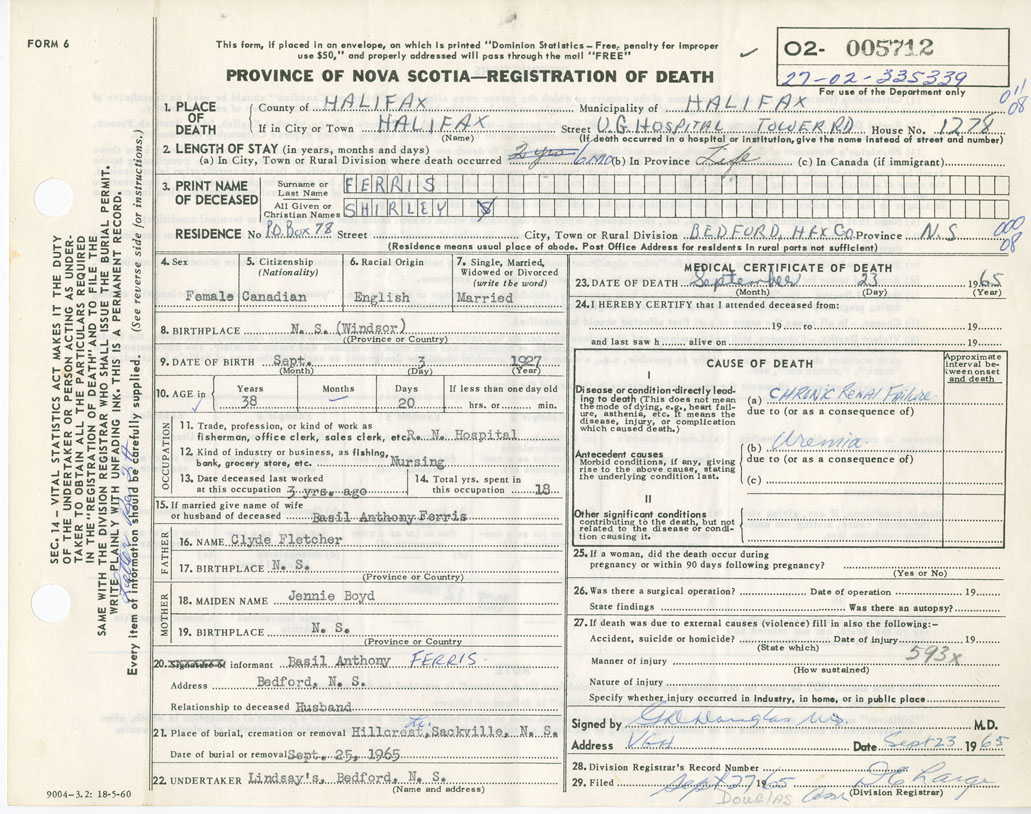 FORM 6
This form, if placed in an envelope, on which is printed "Dominion Statistics—Free, penalty for improper
use $50," and properly addressed will pass through the mail "FREE"
PROVINCE OF NOVA SCOTIA—REGISTRATION OF DEATH
02- 005712
27-02-335339
For use of the Department only
011
08
1. PLACE OF DEATH
County of HALIFAX Municipality of HALIFAX
If in City or Town HALIFAX Street V.G. HOSPITAL TOWER RD House No. 1278
(Name) (If death occurred in a hospital or institution, give the name instead of street and number)
2. LENGTH OF STAY (in years, months and days)
(a) In City, Town or Rural Division where death occurred 2 yrs 6 mo (b) In Province Life (c) In Canada (if immigrant)
3. PRINT NAME OF DECEASED
Surname or Last Name FERRIS
All Given or Christian Names SHIRLEY
RESIDENCE No P.O. Box 78 Street City, Town or Rural Division BEDFORD, HFX CO Province N.S
000
08
(Residence means usual place of abode. Post Office Address for residents in rural parts not sufficient)
4. Sex Female
5. Citizenship (Nationality) Canadian
6. Racial Origin English
7. Single, Married, Widowed or Divorced (write the word) Married
8. BIRTHPLACE N. S. (Windsor)
(Province or Country)
9. DATE OF BIRTH Sept. 3 1927
(Month) (Day) (Year)
10. AGE in Years 38 Months — Days 20 If less than one day old hrs. or min.
OCCUPATION
11. Trade, profession, or kind of work as
fisherman, office clerk, sales clerk, etc. R. N. Hospital
12. Kind of industry or business, as fishing,
bank, grocery store, etc. Nursing
13. Date deceased last worked
at this occupation 3 yrs. ago
14. Total yrs. spent in
this occupation 18
15. If married give name of wife
or husband of deceased Basil Anthony Ferris
FATHER
16. NAME Clyde Fletcher
17. BIRTHPLACE N. S.
(Province or Country)
MOTHER
18. MAIDEN NAME Jennie Boyd
19. BIRTHPLACE N. S.
(Province or Country)
20. Signature of informant Basil Anthony FERRIS.
Address Bedford, N. S.
Relationship to deceased Husband
21. Place of burial, cremation or removal Hillcrest, Sackville, N. S.
Date of burial or removal Sept. 25, 1965
22. UNDERTAKER Lindsay's, Bedford, N. S.
(Name and address)
9004-3.2: 18-5-60
MEDICAL CERTIFICATE OF DEATH
23. DATE OF DEATH September 23 1965
(Month) (Day) (Year)
24. I HEREBY CERTIFY that I attended deceased from:
19 to 19
and last saw h alive on 19
CAUSE OF DEATH
Approximate interval between onset and death
I
Disease or condition directly leading to death (This does not mean the mode of dying, e.g., heart failure, asthenia, etc. It means the disease, injury, or complication which caused death.)
(a) CHRONIC Renal Failure
due to (or as a consequence of)
Antecedent causes
Morbid conditions, if any, giving rise to the above cause, stating the underlying condition last.
(b) Uremia
due to (or as a consequence of)
(c)
II
Other significant conditions
contributing to the death, but not related to the disease or condition causing it.
25. If a woman, did the death occur during
pregnancy or within 90 days following pregnancy?
(Yes or No)
26. Was there a surgical operation? Date of operation 19
State findings Was there an autopsy?
27. If death was due to external causes (violence) fill in also the following:-
Accident, suicide or homicide? Date of injury 19
(State which)
593x
Manner of injury
(How sustained)
Nature of injury
Specify whether injury occurred in industry, in home, or in public place
Signed by G D Douglas M.D.
Address VGH Date Sept 23 1965
28. Division Registrar's Record Number
29. Filed Sept 27 1965
(Division Registrar)
DOUGLAS
SEC. 14—VITAL STATISTICS ACT MAKES IT THE DUTY
OF THE UNDERTAKER OR PERSON ACTING AS UNDER-
TAKER TO OBTAIN ALL THE PARTICULARS REQUIRED
IN THE "REGISTRATION OF DEATH" AND TO FILE THE
SAME WITH THE DIVISION REGISTRAR WHO SHALL ISSUE THE BURIAL PERMIT.
WRITE PLAINLY WITH UNFADING INK. THIS IS A PERMANENT RECORD.
Every item of information should be carefully supplied. (See reverse side for instructions.)